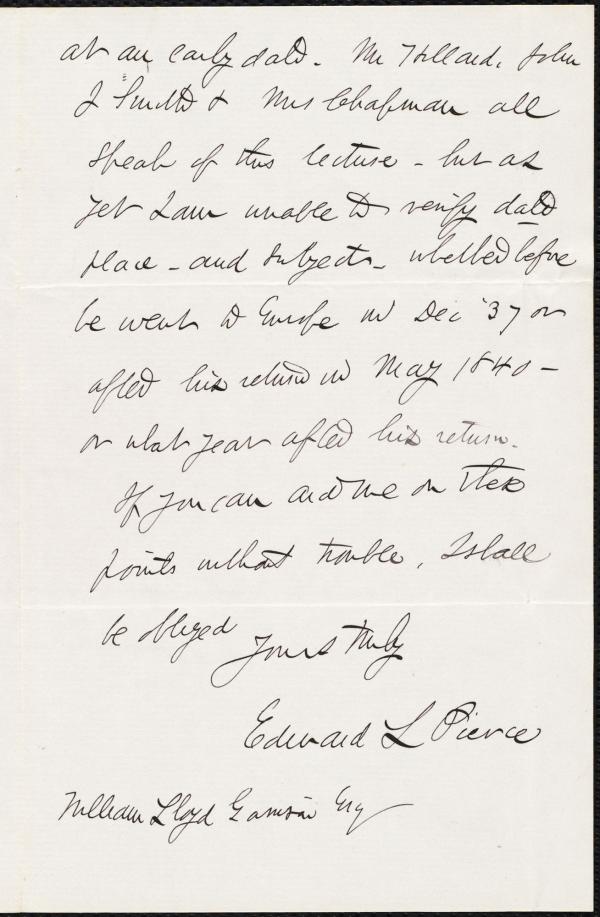 at an early date. Mr Hillard, John
J Smith & Mrs Chapman all
speak of this lecture - but as
yet I am unable to verify date
place - and subjects - whether before
he went to Europe in Dec '37 or
after his return in May 1840 -
or what year after his return.
If you can aid me on these
points without trouble, I shall
be obliged
Yours truly
Edward L Pierce
William Lloyd Garrison Esq